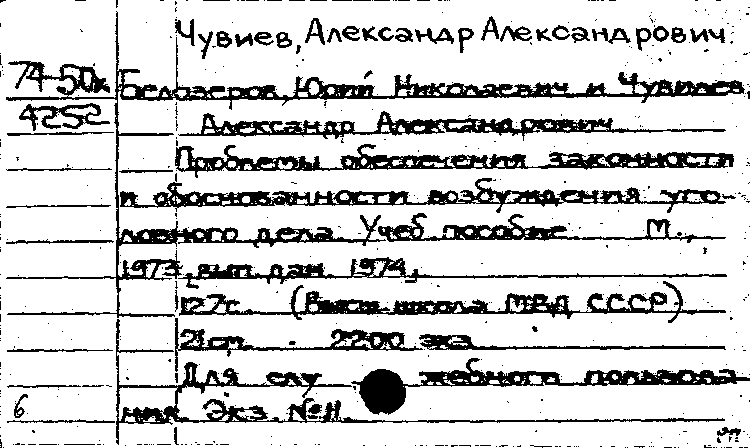 Чувиев, Александр Александрович.
74-50к Белозеров, Юрий Николаевич и Чувилев,
4252 Александр Александрович
Проблемы обеспечения законности
и обоснованности возбуждения уго-
ловного дела. Учеб. пособие. М.,
1973, [вып. дан. 1974].
127 с. (Высш. школа МВД СССР).
21 см. 2200 экз.
Для служебного пользова-
6 ния. Экз. №11.